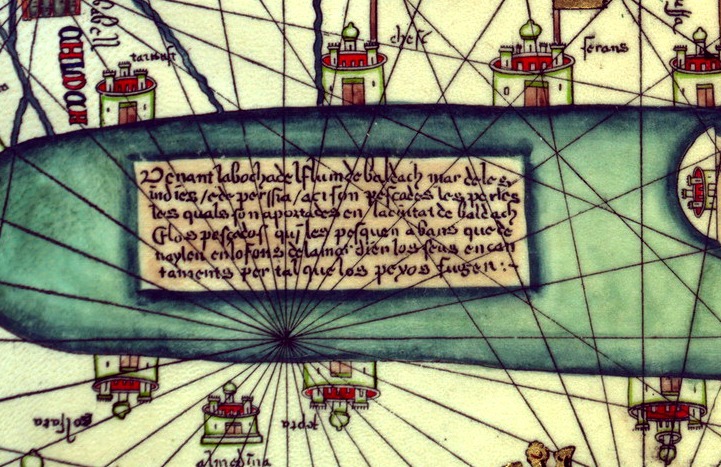 chesi
serans
Denant labochadelflumde baldach mar deles
indies / ede perssia / aci son pescades les perles
les quals son aportades en laciutat de baldach
Elos pescados qui les pesquen abans quede
uaylen enlo fons delamar dien los seus encan
taments per tal quelos peyos fugen :~
almedina